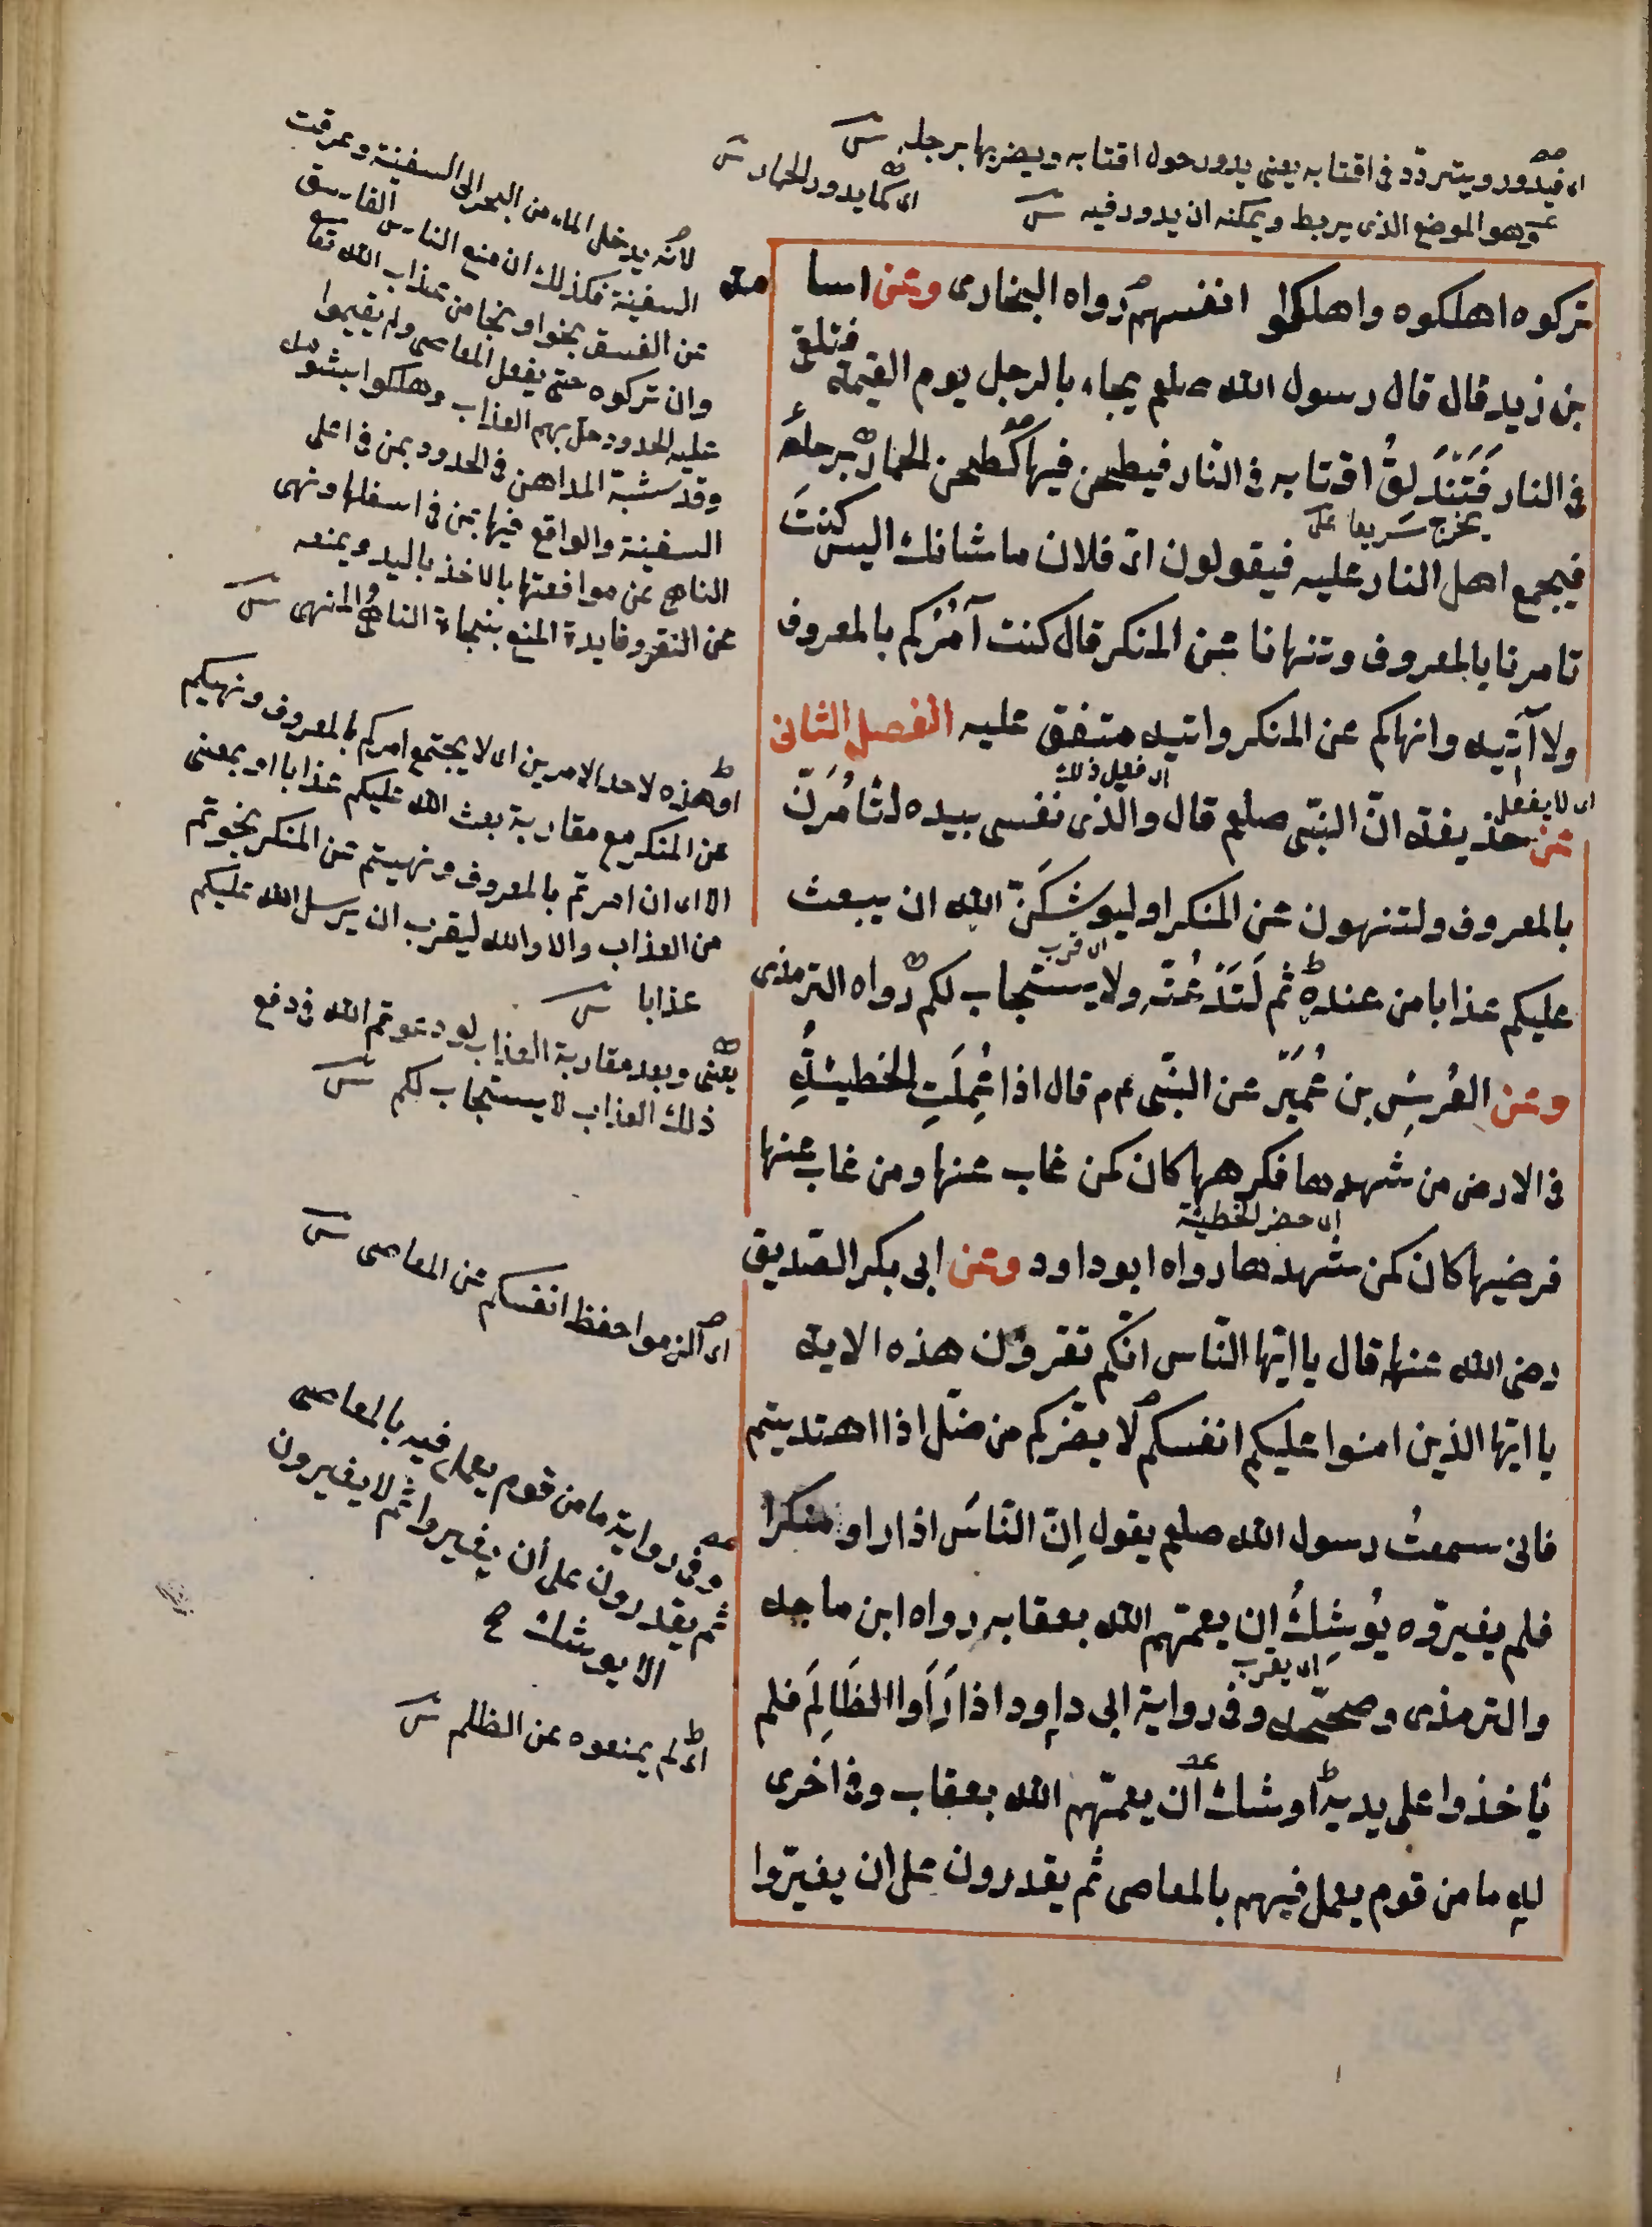 اى فيدور ويتردّد فى اقتابه يعنى يدور حول اقتابه ويضربها برجله ش
اى كما يدور الحمار ش
وهو الموضع الذى يربط ويمكنه ان يدور فيه ش
تركوه اهلكوه واهلكوا انفسهم رواه البخارى وعن اسامة
بن زيد قال قال رسول الله صلعم يجاء بالرجل يوم القيمة فتلقى
فى النار فَتَنْدَلِقُ اقتابه فى النّار فيطحن فيها كطحن الحمار برحاه
يخرج سريعا
فيجمع اهل النار عليه فيقولون اى فلان ما شانك اليس كنتَ
تامرنا بالمعروف وتنهانا عن المنكر قال كنت آمُرُكم بالمعروف
ولا آتيه وانهاكم عن المنكر واتيه متفق عليه الفصل الثانى
اى لا يفعل
اى فعل ذلك
عن حذيفة انّ النبّى صلعم قال والّذى نفسى بيده لتأمُرَنّ
بالمعروف ولتنهون عن المنكر او ليوشكَنّ الله ان يبعث
اى قرب
عليكم عذابا من عنده ثم لَتَدْعُنّه ولا يستجاب لكم رواه الترمذى
وعن العُرسِ بن عُمَيّر عن النبّى عم قال اذا عُمِلَتِ الخطيئةُ
فى الارض من شهدها فكرهها كان كمن غاب عنها ومن غاب عنها
اى حضر الخطيئة
فرضيها كان كمن شهدها رواه ابو داود وعن ابى بكر الصّديق
رضى الله عنه قال يا ايّها النّاس انّكم تقرؤن هذه الاية
يا ايّها الذين امنوا عليكم انفسكم لا يضرّكم من ضلّ اذا اهتديتم
فانى سمعتُ رسول الله صلعم يقول اِنّ النّاسَ اذا راو منكرا
فلم يغيرّوه يُوشِكُ ان يعمّهم الله بعقابه رواه ابن ماجه
اى يقرب
والترمذى وصحّحه وفى رواية ابى داود اذا رَاَوا الظَالِمَ فلم
يأخذوا على يديه اوشك ان يعمّهم الله بعقاب وفى اخرى
له ما من قوم يعمل فيهم بالمعاصى ثم يقدرون على ان يغيّروا
لانّه يدخل الماء من البحر الى السفينة وغرقت
السفينة فكذلك ان منع الناس الفاسق
عن الفسق نجوا ونجا من عذاب الله تعا
وان تركوه حتى يفعل المعاصى ولم يقيموا
عليه الحدود حل بهم العذاب وهلكوا بشومه
وقد شبّه المداهن فى الحدود بمن فى اعلى
السفينة والواقع فيها بمن فى اسفلها ونهى
الناهى عن موافعتها بالاخذ باليد ويمنعه
عن النقر وفايدة المنع بنجاة الناهى والمنهى ش
او هذه لاحد الامرين اى لا يجتمع امركم بالمعروف ونهيكم
عن المنكر مع مقاربة بعث الله عليكم عذابا او بمعنى
الا اى ان امرتم بالمعروف ونهيتم عن المنكر نجوتم
من العذاب والا والله ليقرب ان يرسل الله عليكم
عذابا ش
يعنى وبعد مقاربة العذاب لو دعوتم الله فى دفع
ذلك العذاب لا يستجاب لكم ش
اى الزموا حفظ انفسكم عن المعاصى ش
وفى رواية ما من قوم يعمل فيه بالمعاصى
ثم يقدرون على ان يغيروا ثم لا يغيرون
الا يوشك ح
اى لم يمنعوه عن الظلم ش